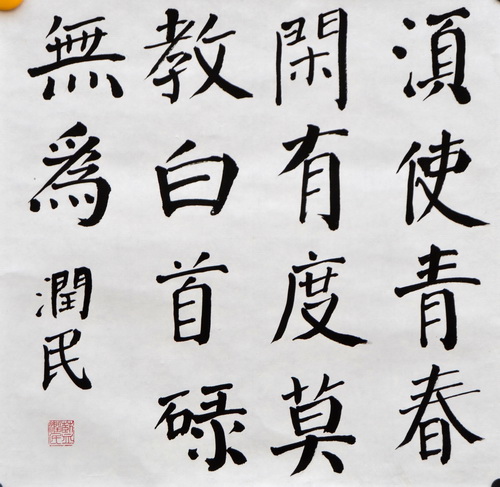 須使青春
閑有度莫
教白首碌
無為
潤民